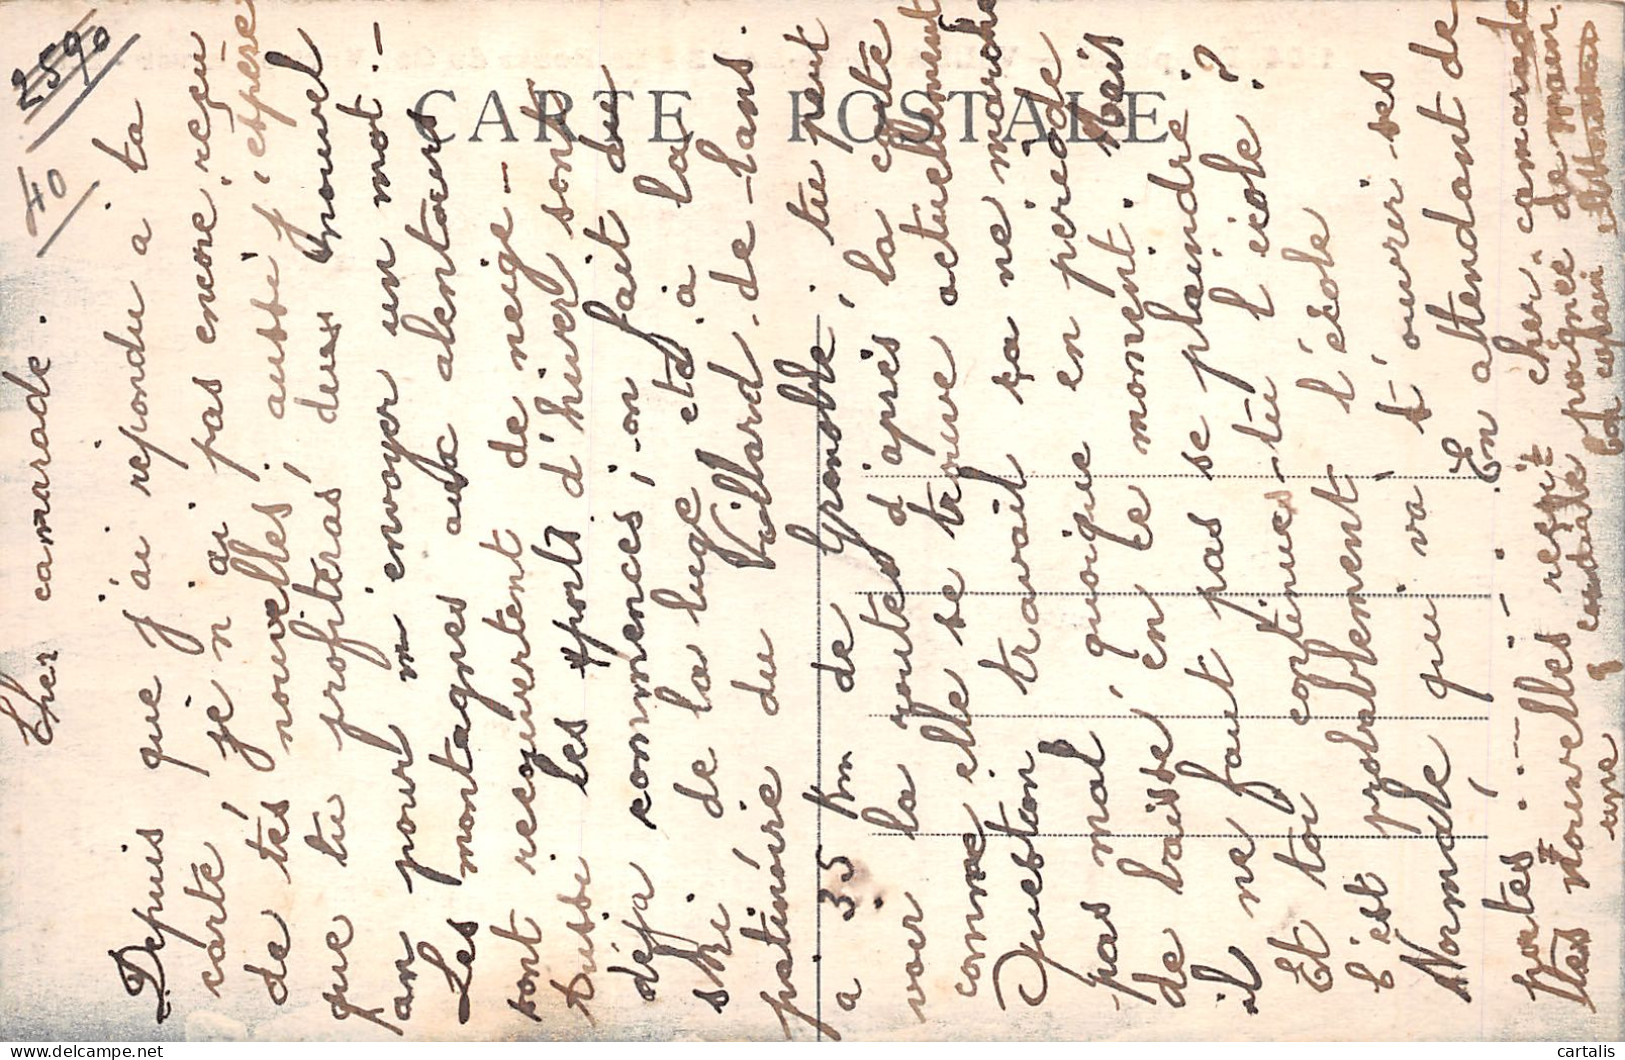 2590
40
CARTE POSTALE
Cher camarade.
Depuis que j'ai répondu à ta
carte je n'ai pas encore reçu
de tes nouvelles, aussi j'espère
que tu profiteras du nouvel
an pour m'envoyer un mot.—
Les montagnes aux alentours
sont recouvertent de neige—
Aussi les sports d'hiver sont
déja commencés, on fait du
ski de la luge etc à la
patinoire du Villard-de-Lans.
a 35 Km de Grenoble, tu peut
voir la route d'après la carte
comme elle se trouve actuellement
Question travail ça ne marche
pas mal, quoique en période
de baisse en ce moment. Mais
il ne faut pas se plaindre!
Et toi continues-tu l'école?
C'est probablement l'école
Normale qui va t'ouvrir ses
portes ... En attendant de
tes nouvelles reçoit cher camarade
une cordiale poignée de main.
ton copain
cartalis